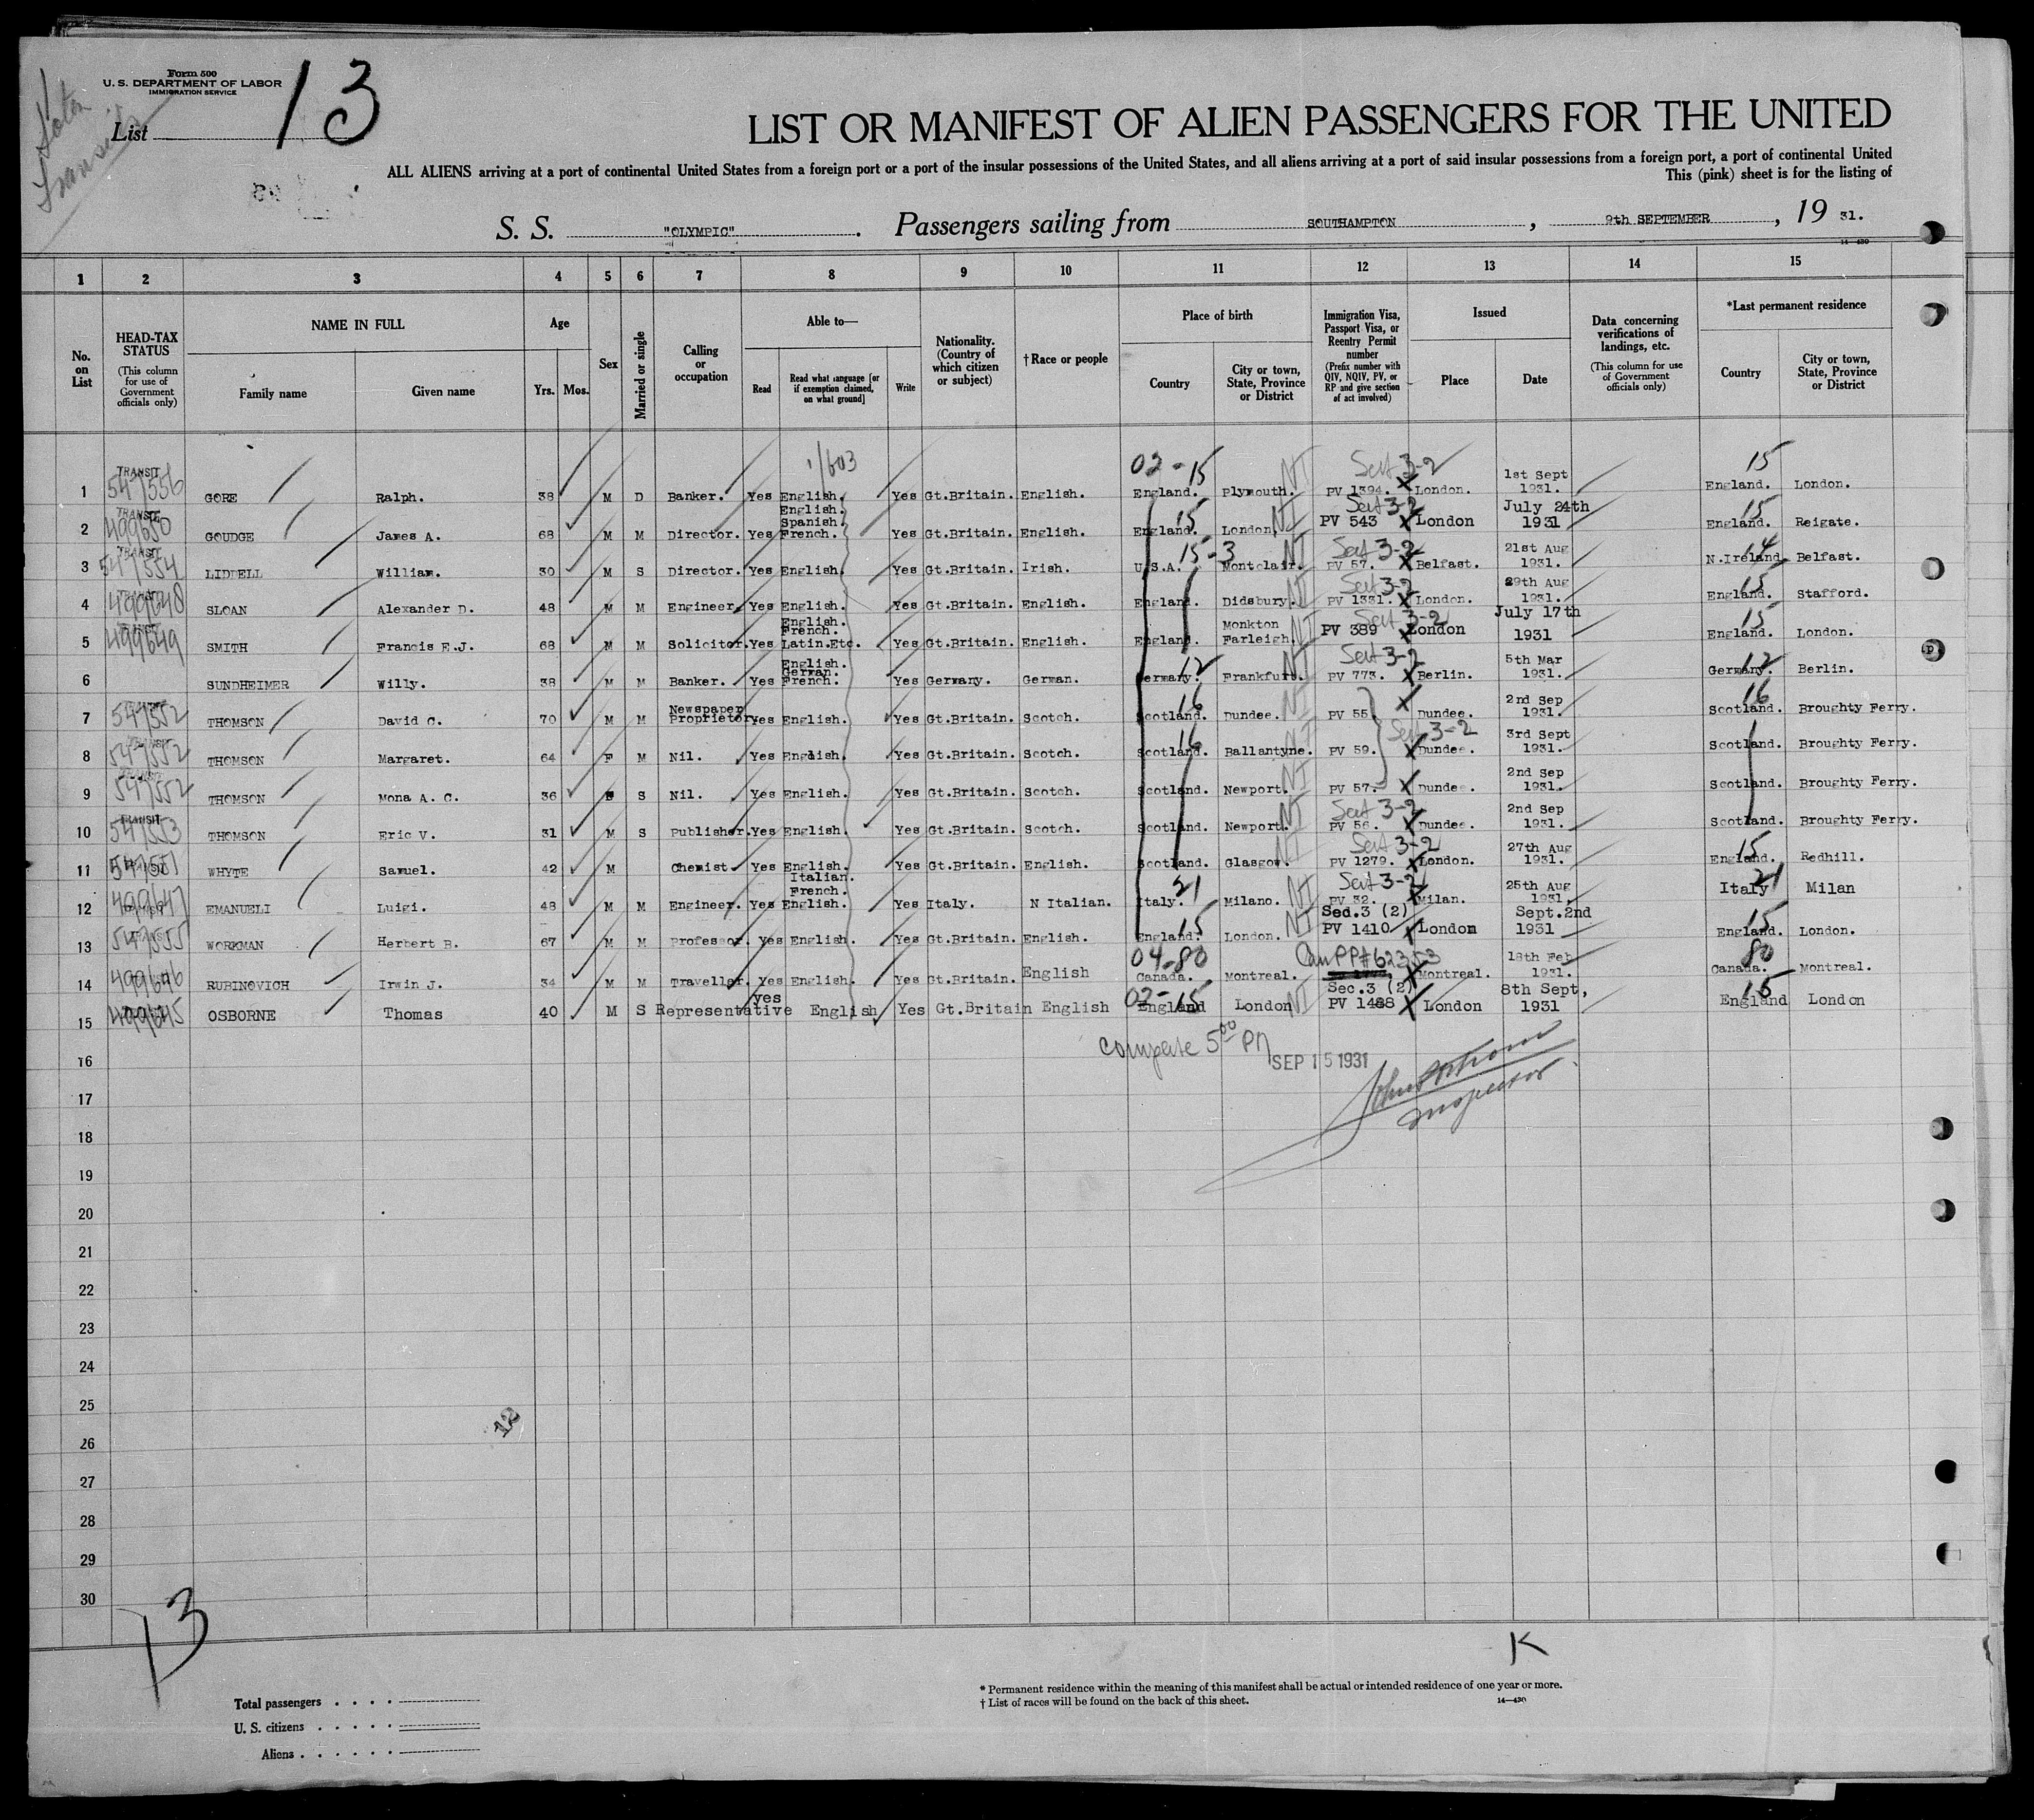 Form 500
U. S. DEPARTMENT OF LABOR
IMMIGRATION SERVICE
List 13
Transits
LIST OR MANIFEST OF ALIEN PASSENGERS FOR THE UNITED
ALL ALIENS arriving at a port of continental United States from a foreign port or a port of the insular possessions of the United States, and all aliens arriving at a port of said insular possessions from a foreign port, a port of continental United
This (pink) sheet is for the listing of
S. S. "OLYMPIC". Passengers sailing from SOUTHAMPTON, 9th SEPTEMBER, 19 31.
14—430
1 2 3 4 5 6 7 8 9 10 11 12 13 14 15
No. on List
HEAD-TAX STATUS (This column for use of Government officials only)
NAME IN FULL
Family name Given name
Age
Yrs. Mos.
Sex
Married or single
Calling or occupation
Able to—
Read
Read what language [or if exemption claimed, on what ground]
Write
Nationality. (Country of which citizen or subject)
†Race or people
Place of birth
Country
City or town, State, Province or District
Immigration Visa, Passport Visa, or Reentry Permit number (Prefix number with QIV, NQIV, PV, or RP and give section of act involved)
Issued
Place Date
Data concerning verifications of landings, etc. (This column for use of Government officials only)
*Last permanent residence
Country
City or town, State, Province or District
1/603 02-15 Sect 3-2 15
1 TRANSIT 547556 GORE Ralph. 38 M D Banker. Yes English. Yes Gt.Britain. English. England. Plymouth. NI PV 1394. London. 1st Sept 1931. England. London.
2 TRANSIT 499650 GOUDGE James A. 68 M M Director. Yes English. Spanish. French. Yes Gt.Britain. English. England. 15 London NI Sect 3-2 PV 543 London July 24th 1931 England. 15 Reigate.
3 TRANSIT 547554 LIDDELL William. 30 M S Director. Yes English. Yes Gt.Britain. Irish. U.S.A. 15-3 Montclair. NI Sect 3-2 PV 57. Belfast. 21st Aug 1931. N.Ireland 14 Belfast.
4 499648 SLOAN Alexander D. 48 M M Engineer. Yes English. Yes Gt.Britain. English. England. Didsbury. NI Sect 3-2 PV 1331. London. 29th Aug 1931. England. 15 Stafford.
5 499649 SMITH Francis E.J. 68 M M Solicitor. Yes English. French. Latin.Etc. Yes Gt.Britain. English. England. Monkton Farleigh. NI Sect 3-2 PV 389 London July 17th 1931 England. 15 London.
6 SUNDHEIMER Willy. 38 M M Banker. Yes English. German. French. Yes Germany. German. Germany. 12 Frankfurt. NI Sect 3-2 PV 773. Berlin. 5th Mar 1931. Germany. 12 Berlin.
7 547552 THOMSON David C. 70 M M Newspaper Proprietor Yes English. Yes Gt.Britain. Scotch. Scotland. 16 Dundee. NI PV 55 Dundee. 2nd Sep 1931. Scotland. 16 Broughty Ferry.
8 547552 THOMSON Margaret. 64 F M Nil. Yes English. Yes Gt.Britain. Scotch. Scotland. 16 Ballantyne. NI PV 59. Sect 3-2 Dundee. 3rd Sept 1931. Scotland. Broughty Ferry.
9 547552 THOMSON Mona A. C. 36 S Nil. Yes English. Yes Gt.Britain. Scotch. Scotland. Newport. NI PV 57. Dundee. 2nd Sep 1931. Scotland. Broughty Ferry.
10 TRANSIT 547553 THOMSON Eric V. 31 M S Publisher. Yes English. Yes Gt.Britain. Scotch. Scotland. Newport. NI Sect 3-2 PV 56. Dundee. 2nd Sep 1931. Scotland. Broughty Ferry.
11 547551 WHYTE Samuel. 42 M Chemist. Yes English. Yes Gt.Britain. English. Scotland. Glasgow. NI Sect 3-2 PV 1279. London. 27th Aug 1931. England. 15 Redhill.
12 499647 EMANUELI Luigi. 48 M M Engineer. Yes Italian. French. English. Yes Italy. N Italian. Italy. 21 Milano. NI Sect 3-2 PV 32. Milan. 25th Aug 1931. Italy 21 Milan
13 547555 WORKMAN Herbert B. 67 M M Professor. Yes English. Yes Gt.Britain. English. England. 15 London. NI Sec.3 (2) PV 1410 London Sept.2nd 1931 England. 15 London.
14 499646 RUBINOVICH Irwin J. 34 M M Traveller. Yes English. Yes Gt.Britain. English Canada. 04-80 Montreal. Can PP# 62353 Montreal. 18th Feb 1931. Canada. 80 Montreal.
15 499645 OSBORNE Thomas 40 M S Representative yes English Yes Gt.Britain English England 02-15 London NI Sec.3 (2) PV 1488 London 8th Sept, 1931 England 15 London
16 compere 5 00 PM SEP 15 1931
Inspector
17
18
19
20
21
22
23
24
25
12
26
27
28
29
30
13
K
Total passengers . . . .
U. S. citizens . . . . .
Aliens . . . . . .
* Permanent residence within the meaning of this manifest shall be actual or intended residence of one year or more.
† List of races will be found on the back of this sheet.
14—430